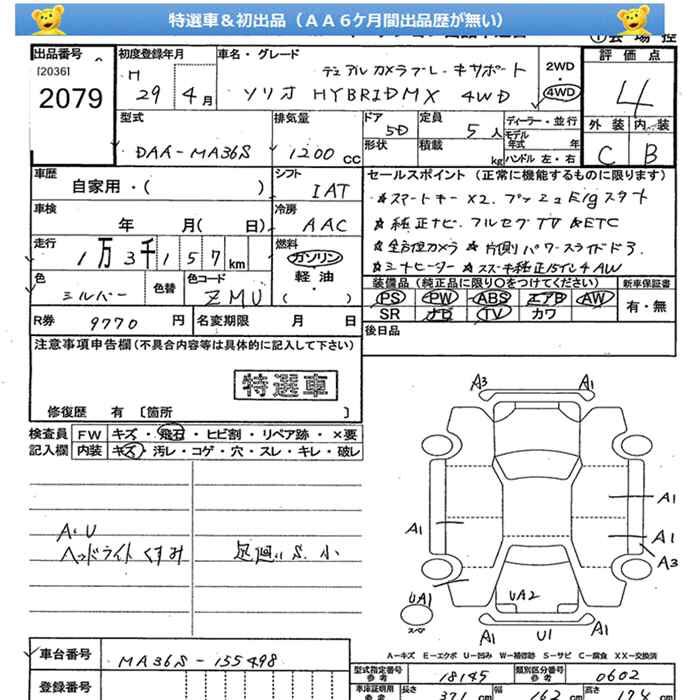 特選車＆初出品（ＡＡ６ケ月間出品歴が無い）
出品番号
[2036]
2079
初度登録年月
H 29 4月
車名・グレード
デュアルカメラブレーキサポート
ソリオ HYBRIDMX 4WD
2WD・4WD
評価点
4
外装 内装
C B
型式
DAA-MA36S
排気量
1200 cc
ドア 5D
形状
定員 5人
積載 kg
ディーラー・並行
モデル年式 年
ハンドル 左・右
車歴
自家用・( )
シフト
IAT
車検
年 月( 日)
冷房
AAC
走行
1万3千157km
燃料
ガソリン
軽・油
( )
色
シルバー
色替
色コード
ZMU
セールスポイント（正常に機能するものに限ります）
☆スマートキー×2. プッシュEgスタート
☆純正ナビ. フルセグTV ☆ETC
☆全方位カメラ ☆片側パワースライドドア.
☆シートヒーター ☆スズキ純正15インチAW
装備品（純正品に限り○をつけてください）
新車保証書
PS PW ABS エアB AW
SR ナビ TV カワ
有・無
R券 9770 円
名変期限 月 日
後日品
注意事項申告欄(不具合内容等は具体的に記入して下さい)
特選車
修復歴 有 [箇所 ]
検査員記入欄
FW キズ・飛石・ヒビ割・リペア跡・×要
内装 キズ・汚レ・コゲ・穴・スレ・キレ・破レ
A・U
ヘッドライトくすみ
足廻り S. 小
A3 A1
A1
A1 A1
A3
UA1 UA2
スペア
A1 U1 A1
A－キズ E－エクボ U－凹み W－補修跡 S－サビ C－腐食 XX－交換済
車台番号
MA36S-155498
登録番号
型式指定番号 参考
18145
類別区分番号 参考
0602
車庫証明用 参考
長さ 371 cm
幅 162 cm
高さ 174 cm